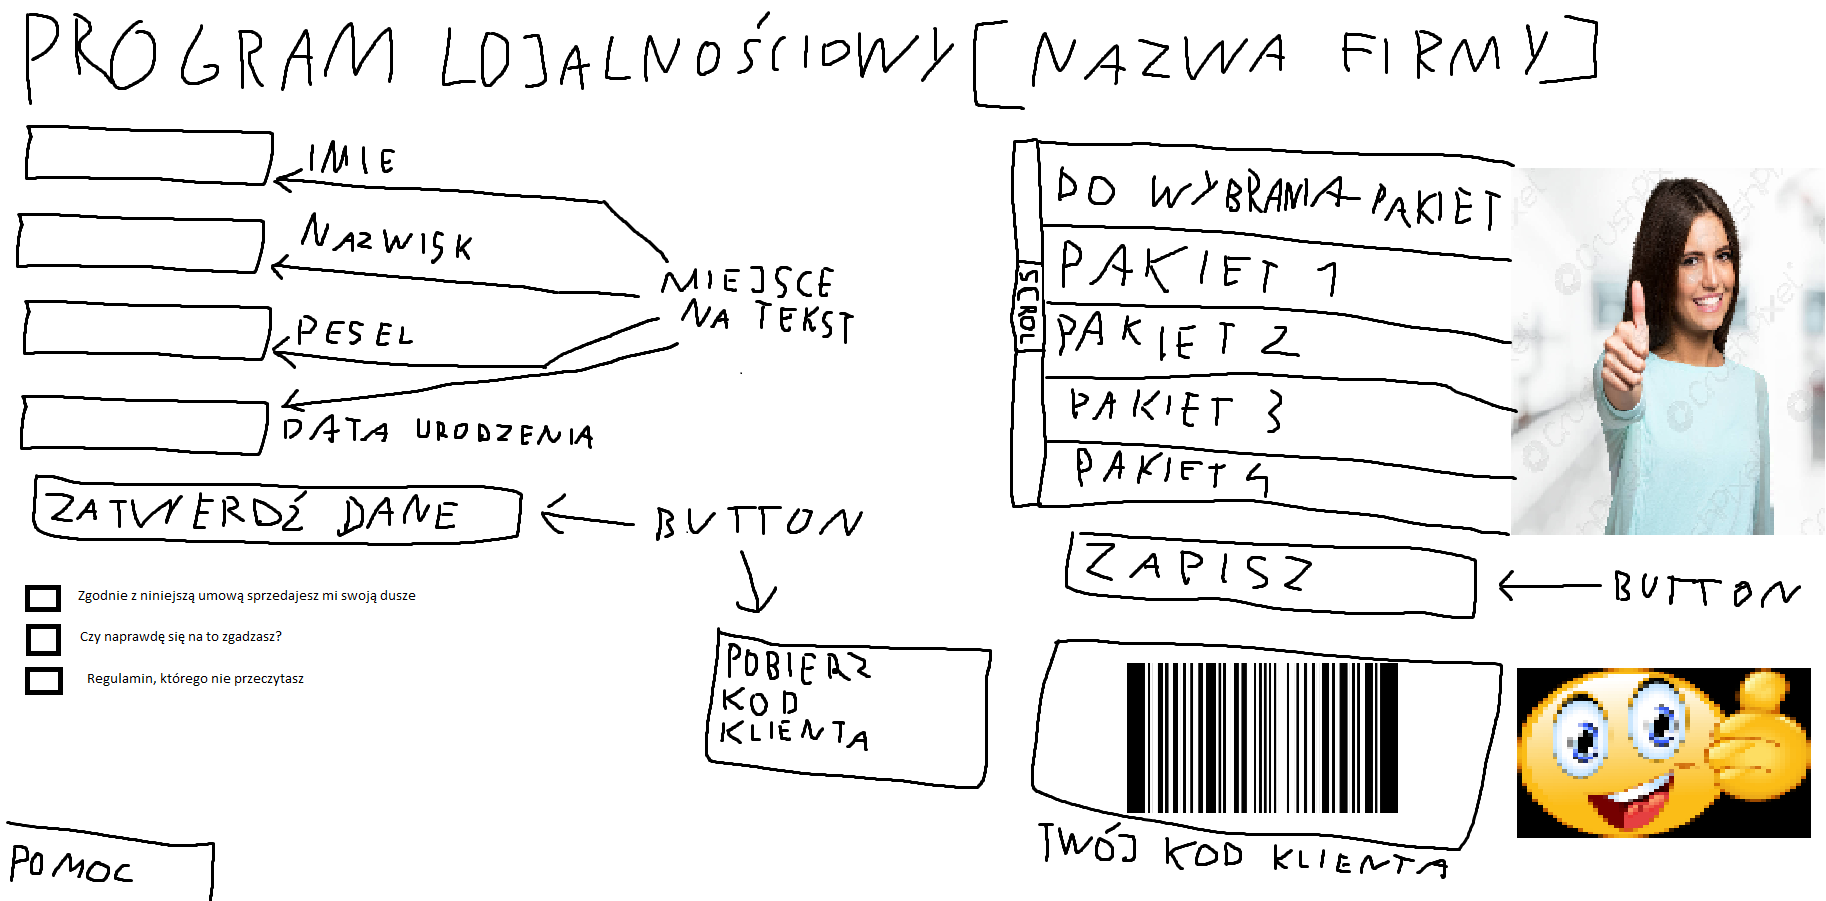 PROGRAM LOJALNOŚCIOWY [NAZWA FIRMY]
IMIE
NAZWISK
PESEL
DATA URODZENIA
MIEJSCE
NA TEKST
ZATWIERDŹ DANE
BUTTON
Zgodnie z niniejszą umową sprzedajesz mi swoją dusze
Czy naprawdę się na to zgadzasz?
Regulamin, którego nie przeczytasz
POBIERZ
KOD
KLIENTA
POMOC
SCROL
DO WYBRANIA PAKIET
PAKIET 1
PAKIET 2
PAKIET 3
PAKIET 4
ZAPISZ
BUTTON
TWÓJ KOD KLIENTA
crushpixel